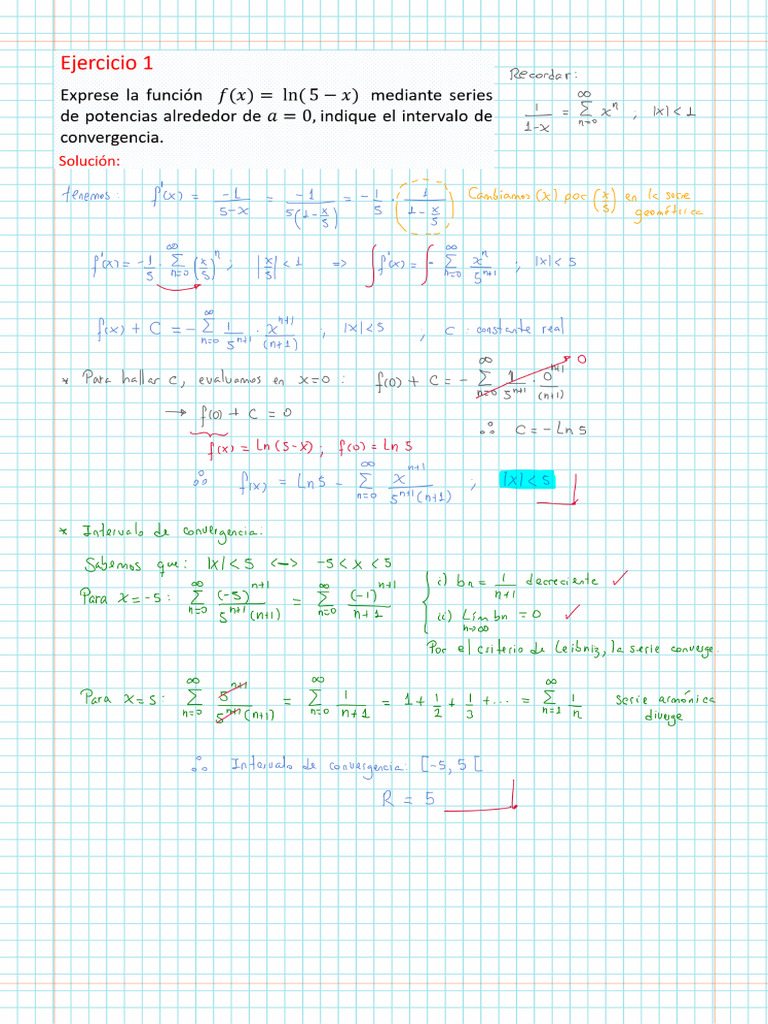 Ejercicio 1
Exprese la función f(x) = ln(5 − x) mediante series
de potencias alrededor de a = 0, indique el intervalo de
convergencia.
Solución:
Recordar:
1/(1-x) = ∑_{n=0}^{∞} x^n ; |x| < 1
tenemos: f'(x) = -1/(5-x) = -1/(5(1-x/5)) = -1/5 · 1/(1-x/5) Cambiamos (x) por (x/5) en la serie geométrica
f'(x) = -1/5 · ∑_{n=0}^{∞} (x/5)^n ; |x/5| < 1 => ∫f'(x) = ∫-∑_{n=0}^{∞} x^n/5^{n+1} ; |x| < 5
f(x) + C = -∑_{n=0}^{∞} 1/5^{n+1} · x^{n+1}/(n+1) , |x| < 5 ; C: constante real
* Para hallar C, evaluamos en x=0: f(0) + C = -∑_{n=0}^{∞} 1/5^{n+1} · 0^{n+1}/(n+1) 0
→ f(0) + C = 0 ∴ C = -Ln 5
f(x) = Ln(5-x); f(0) = Ln 5
∴ f(x) = Ln 5 - ∑_{n=0}^{∞} x^{n+1}/(5^{n+1}(n+1)) ; |x| < 5
* Intervalo de convergencia.
Sabemos que: |x| < 5 <-> -5 < x < 5
Para x=-5: ∑_{n=0}^{∞} (-5)^{n+1}/(5^{n+1}(n+1)) = ∑_{n=0}^{∞} (-1)^{n+1}/(n+1) { i) bn = 1/(n+1) decreciente ✓
ii) Lim_{n→∞} bn = 0 ✓
Por el criterio de Leibniz, la serie converge.
Para x=5: ∑_{n=0}^{∞} 5^{n+1}/(5^{n+1}(n+1)) = ∑_{n=0}^{∞} 1/(n+1) = 1 + 1/2 + 1/3 + ... = ∑_{n=1}^{∞} 1/n serie armónica
diverge
∴ Intervalo de convergencia: [-5, 5[
R = 5